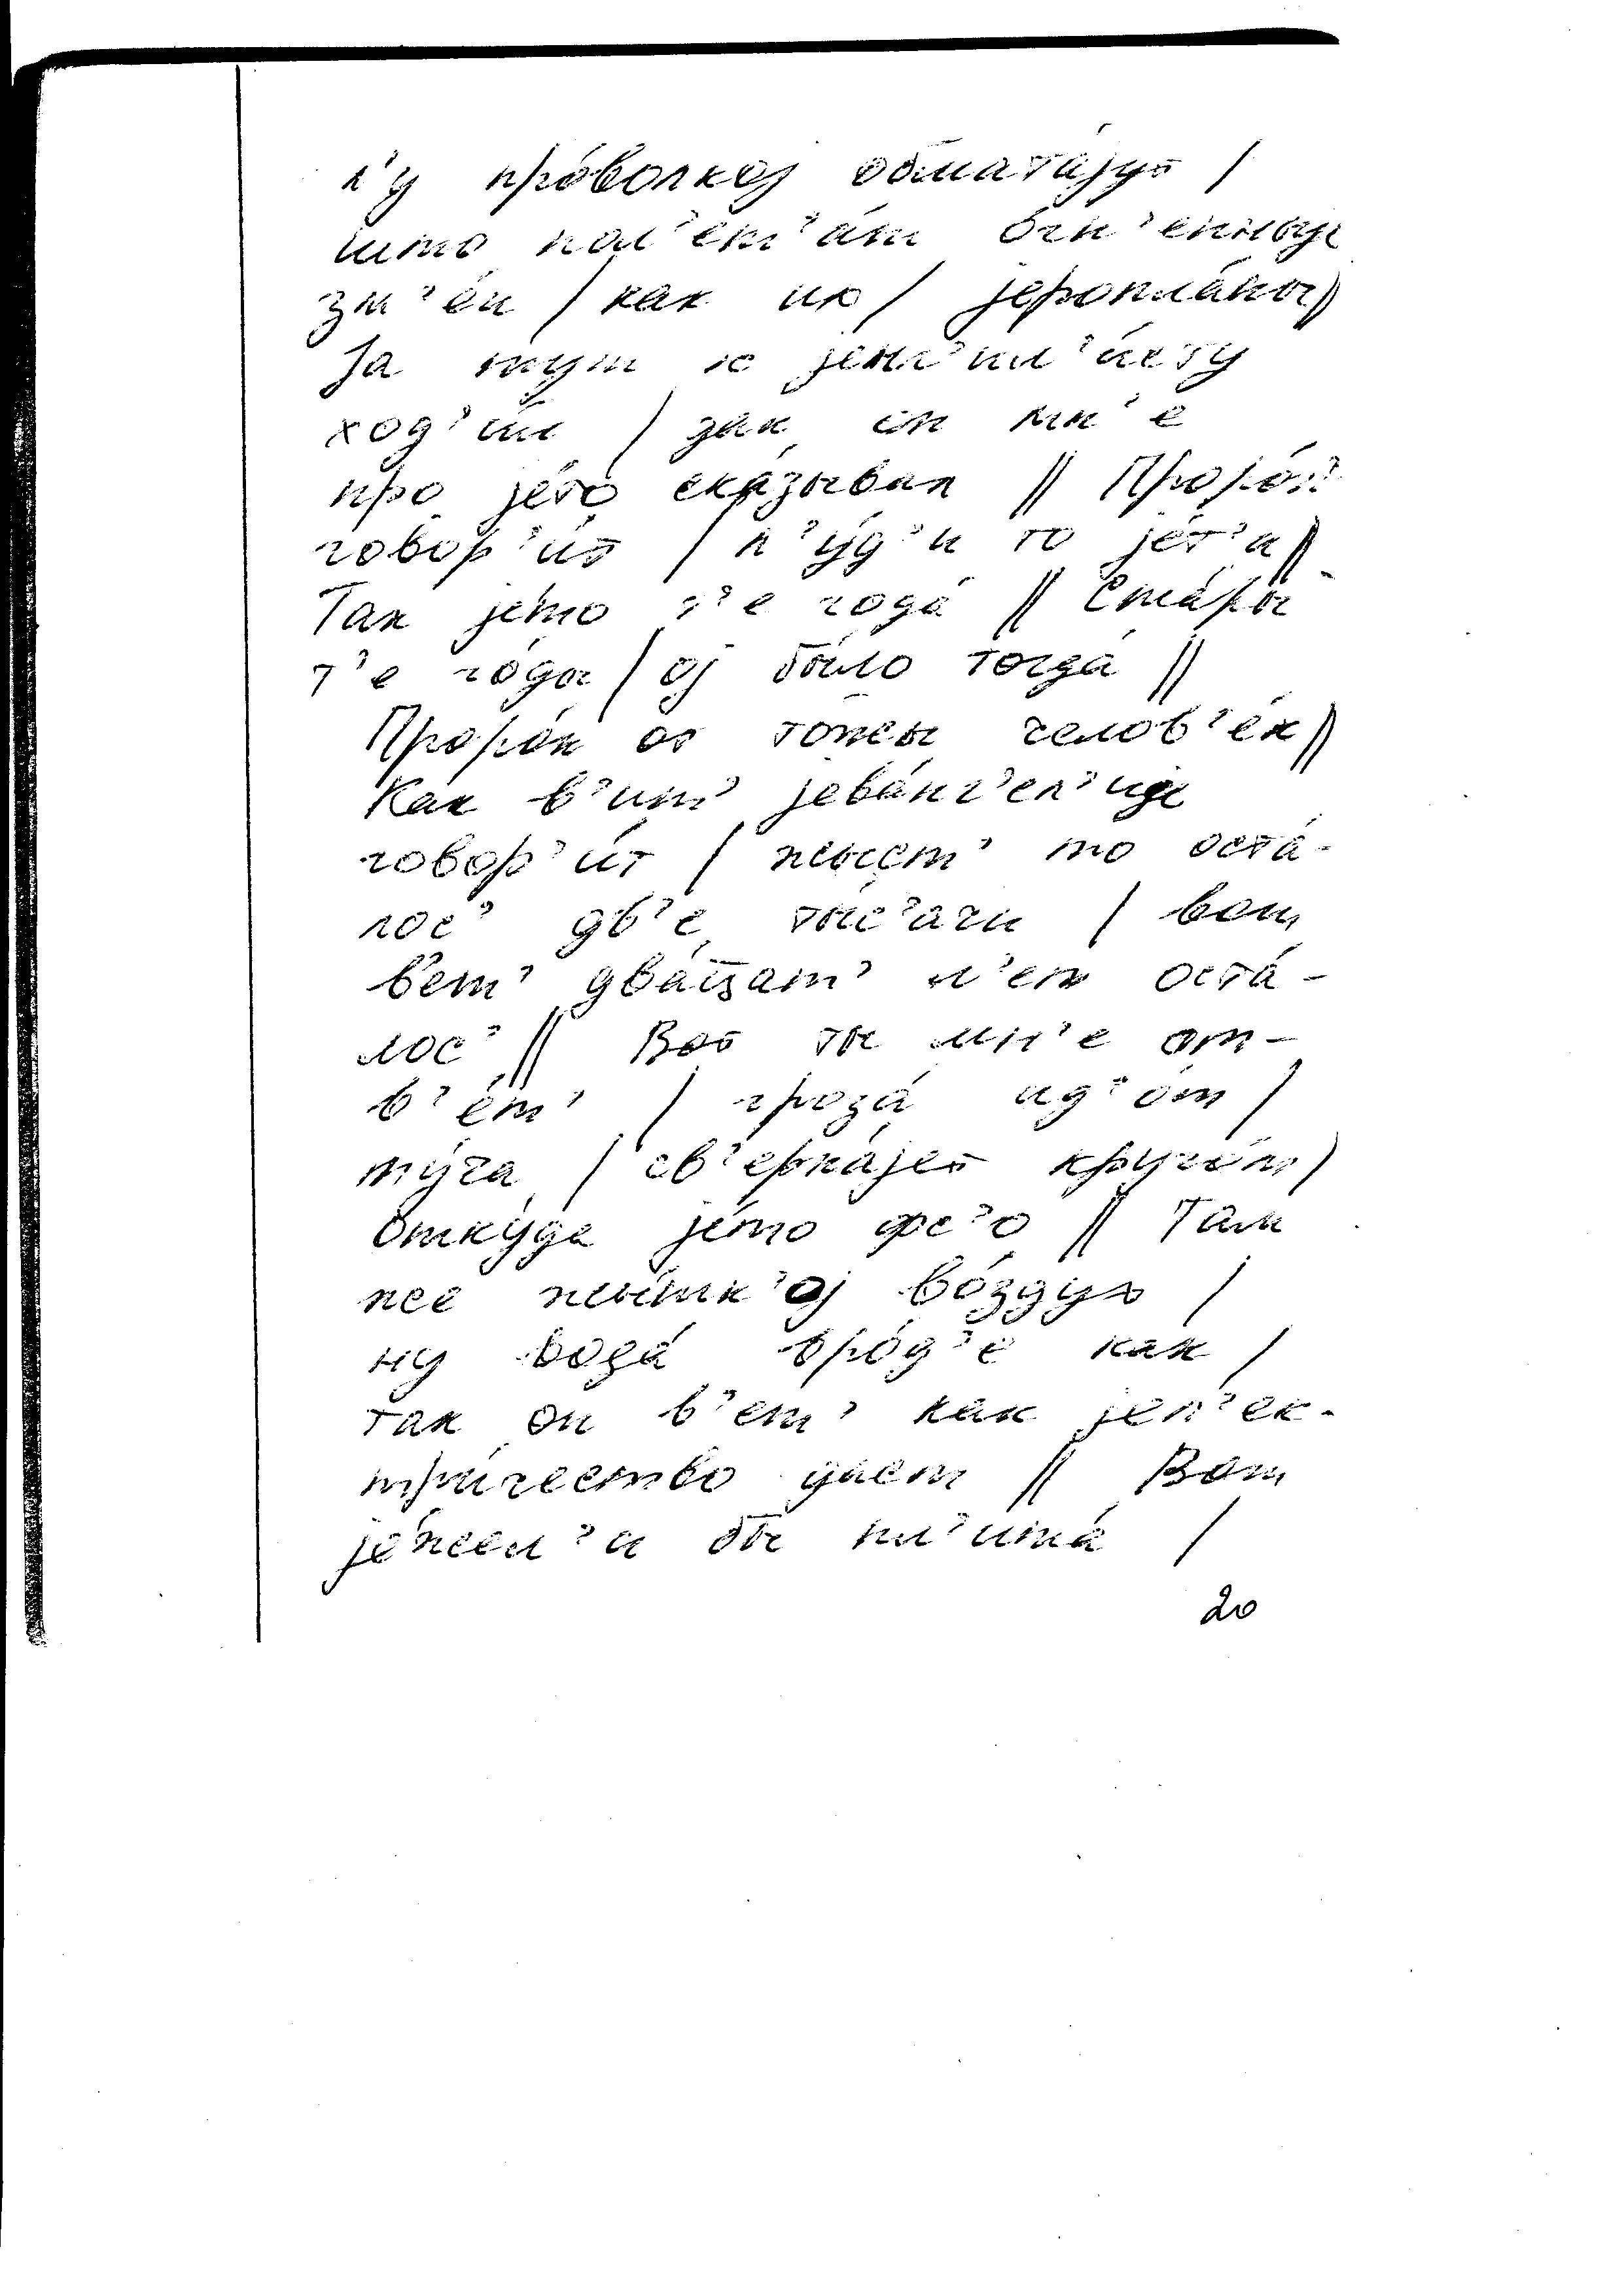 л'у про́волкој обмата́јут /
што пол'ет'а́т о́гн'енныје
зм'е́и / как их / јероплáны //
Ја тут к
ход'и́л / дак он мн'е
про јето ска́зывал // Проро́к
говор'и́т / л'у́д'и то је́т'и //
Так је́то т'е года́ // Ста́ры
т'е го́ды / ој бы́ло тогда́ //
Проро́к от то́жы челов'е́к //
Как в'ит' јева́нг'ел'ије
говор'и́т / жыст' то оста́-
лос' дв'е ты́с'ачи / вот
вет' два́ццат' л'ет оста́-
лос' // Вот ты мн'е от-
в'е́т' / гроза́ ид'о́т /
ту́ча / св'ерка́јет круго́м /
Отку́да је́то фс'о // Там
жее жы́тк'ој во́здух /
ну вода́ вро́д'е как /
так он в'ет' как јел'ек-
три́чество дает // Вот
је́жел'и бы пл'ита́ /
20